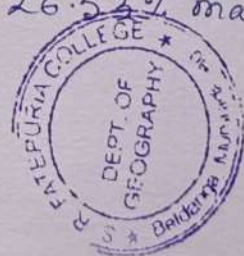 26.32% ma
S R FATEPURIA COLLEGE ★
DEPT. OF
GEOGRAPHY
Beldanga